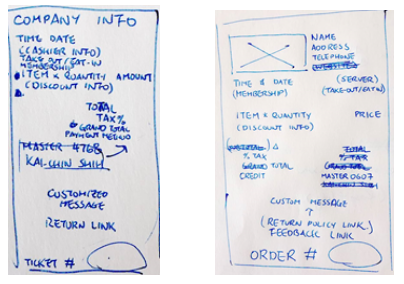 COMPANY INFO
TIME DATE
(CASHIER INFO)
TAKE OUT/EAT-IN
MEMBERSHIP
ITEM & QUANTITY AMOUNT
(DISCOUNT INFO)
TOTAL
TAX%
GRAND TOTAL
PAYMENT METHOD
MASTER 4768
KAI-CHIN SHIH
CUSTOMIZED
MESSAGE
RETURN LINK
TICKET #
NAME
ADDRESS
TELEPHONE
TIME & DATE (SERVER)
(MEMBERSHIP) (TAKE-OUT/EATIN)
ITEM & QUANTITY PRICE
(DISCOUNT INFO)
TOTAL
% TAX % TAX
GRAND TOTAL
CREDIT MASTER 0607
CUSTOM MESSAGE
(RETURN POLICY LINK)
FEEDBACK LINK
ORDER #